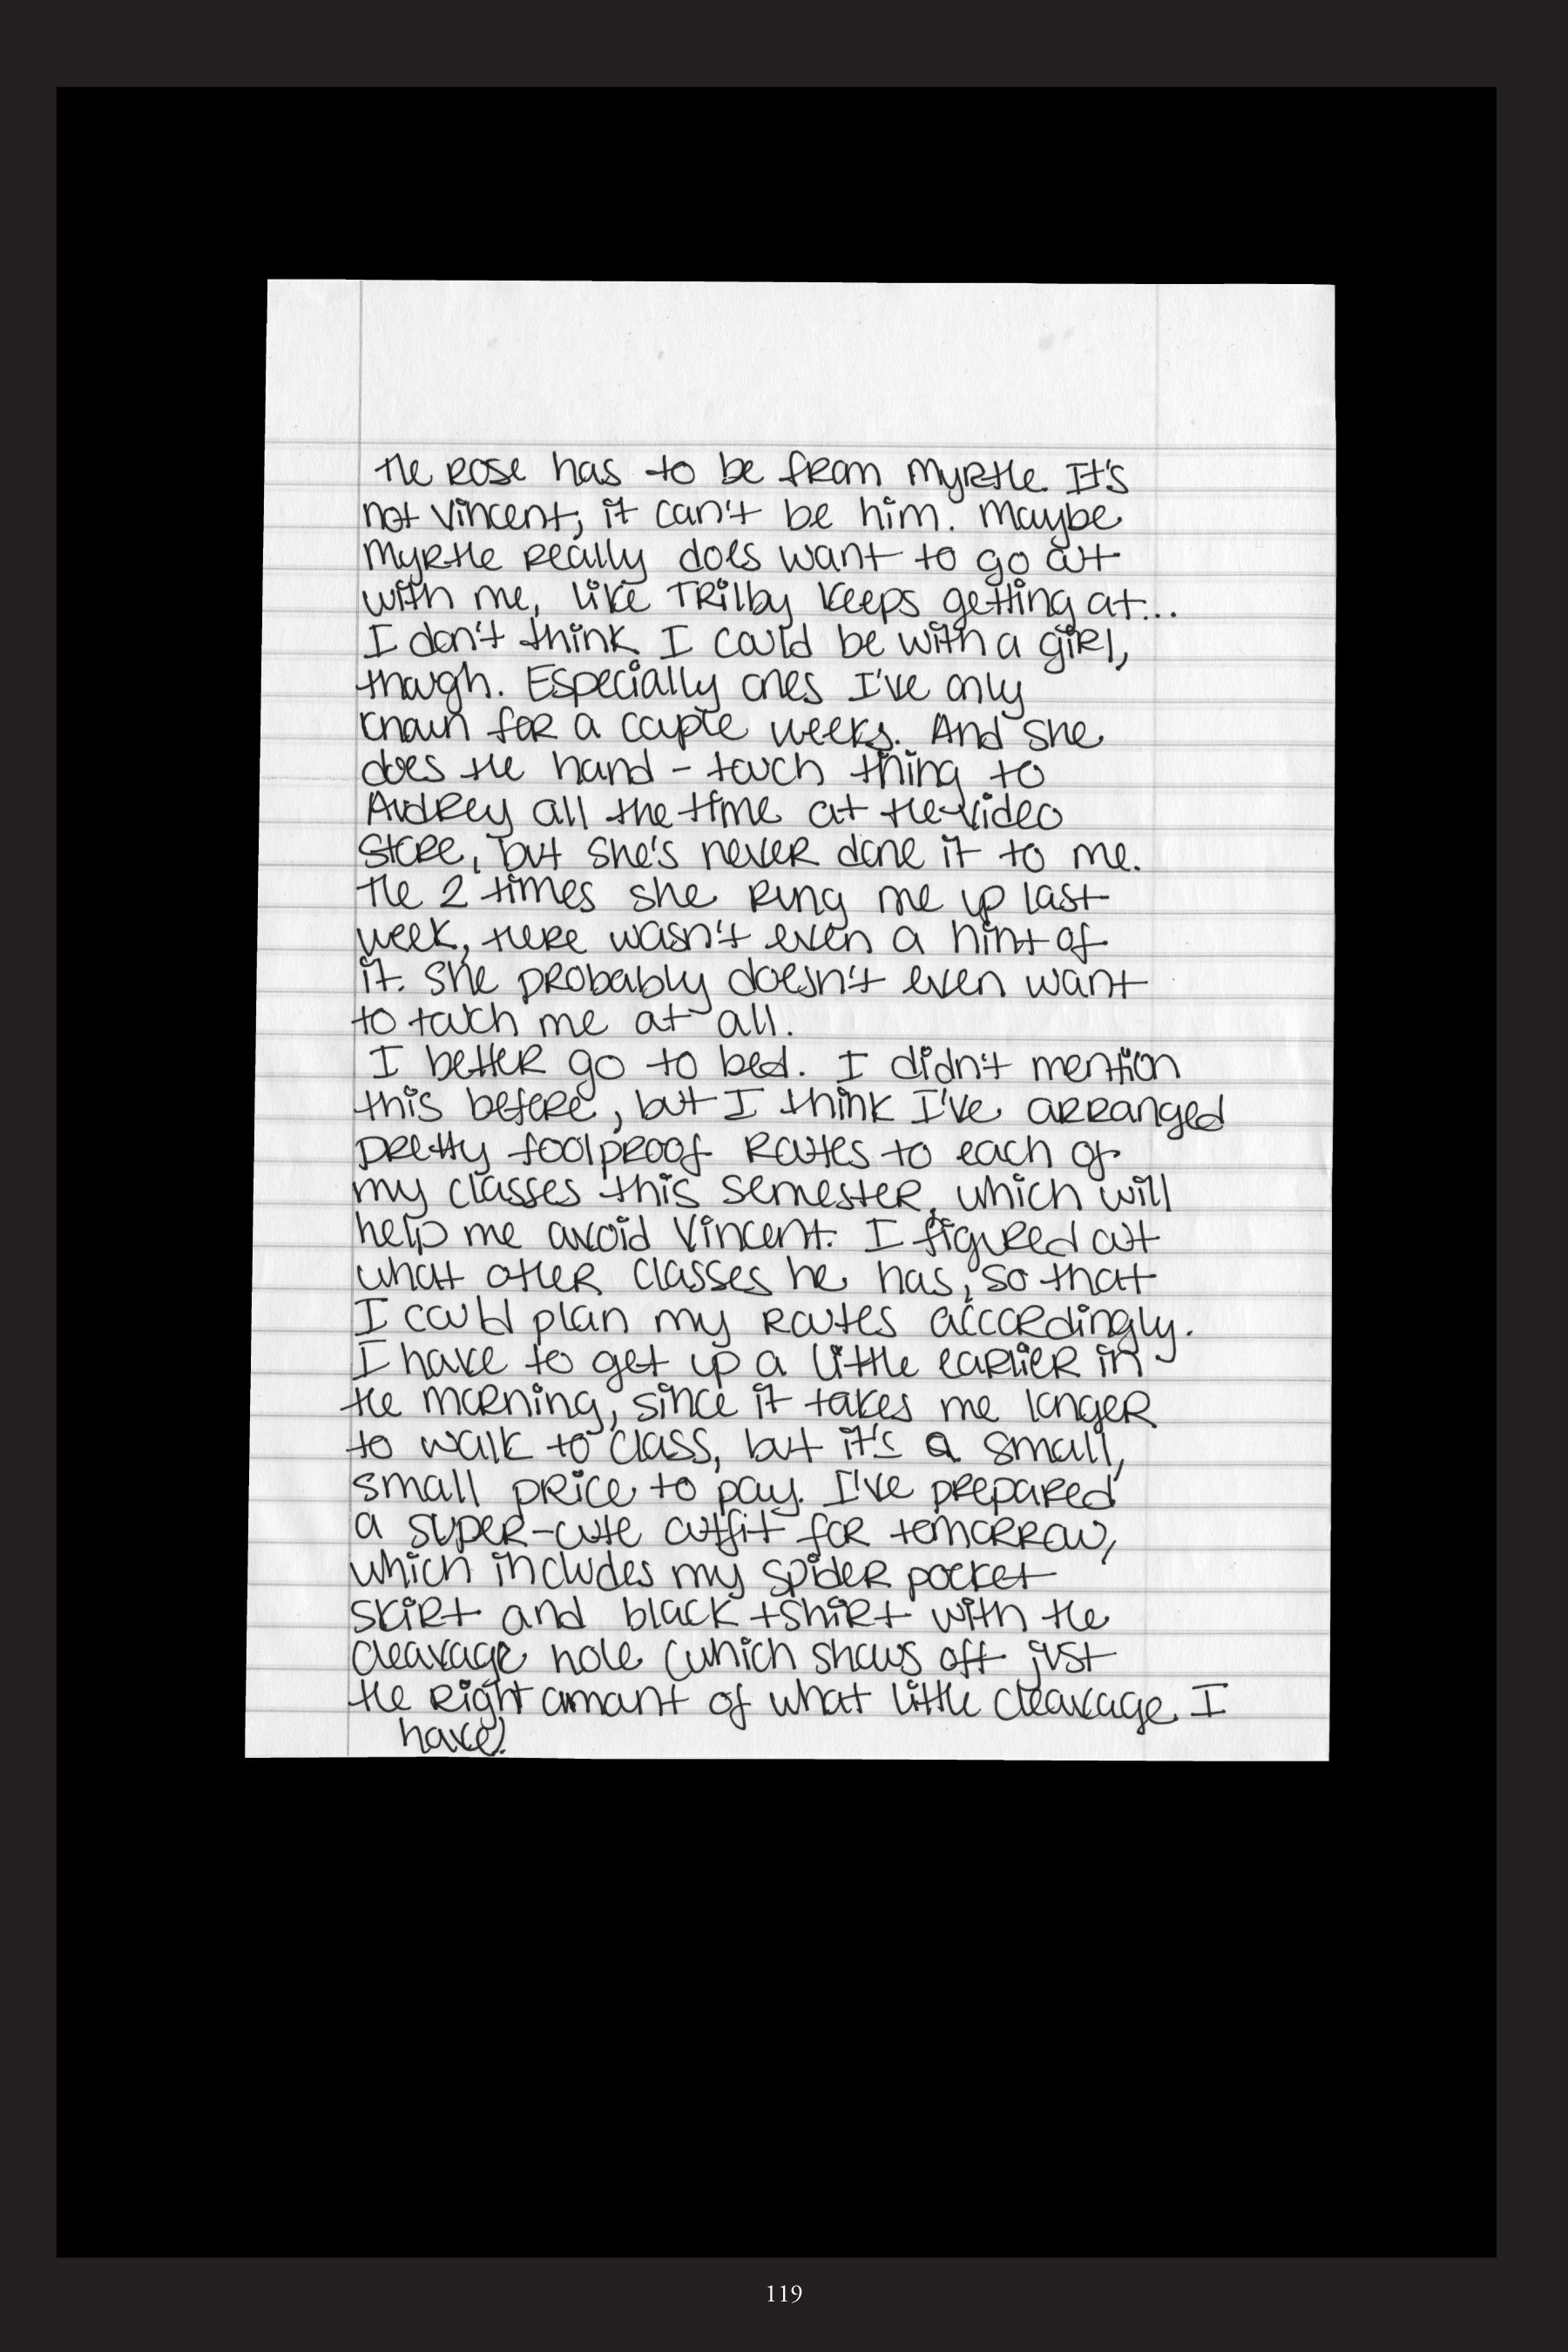 The Rose has to be from Myrtle. It's
not Vincent; it can't be him. Maybe
Myrtle really does want to go out
with me, like Trilby keeps getting at...
I don't think I could be with a girl,
though. Especially ones I've only
known for a couple weeks. And she
does the hand-touch thing to
Audrey all the time at the video
store, but she's never done it to me.
The 2 times she rung me up last
week, there wasn't even a hint of
it. She probably doesn't even want
to touch me at all.
I better go to bed. I didn't mention
this before, but I think I've arranged
pretty foolproof routes to each of
my classes this semester, which will
help me avoid Vincent. I figured out
what other classes he has, so that
I could plan my routes accordingly.
I have to get up a little earlier in
the morning, since it takes me longer
to walk to class, but it's a small,
small price to pay. I've prepared
a super-cute outfit for tomorrow,
which includes my spider pocket
skirt and black tshirt with the
cleavage hole (which shows off just
the right amount of what little cleavage I
have).
119